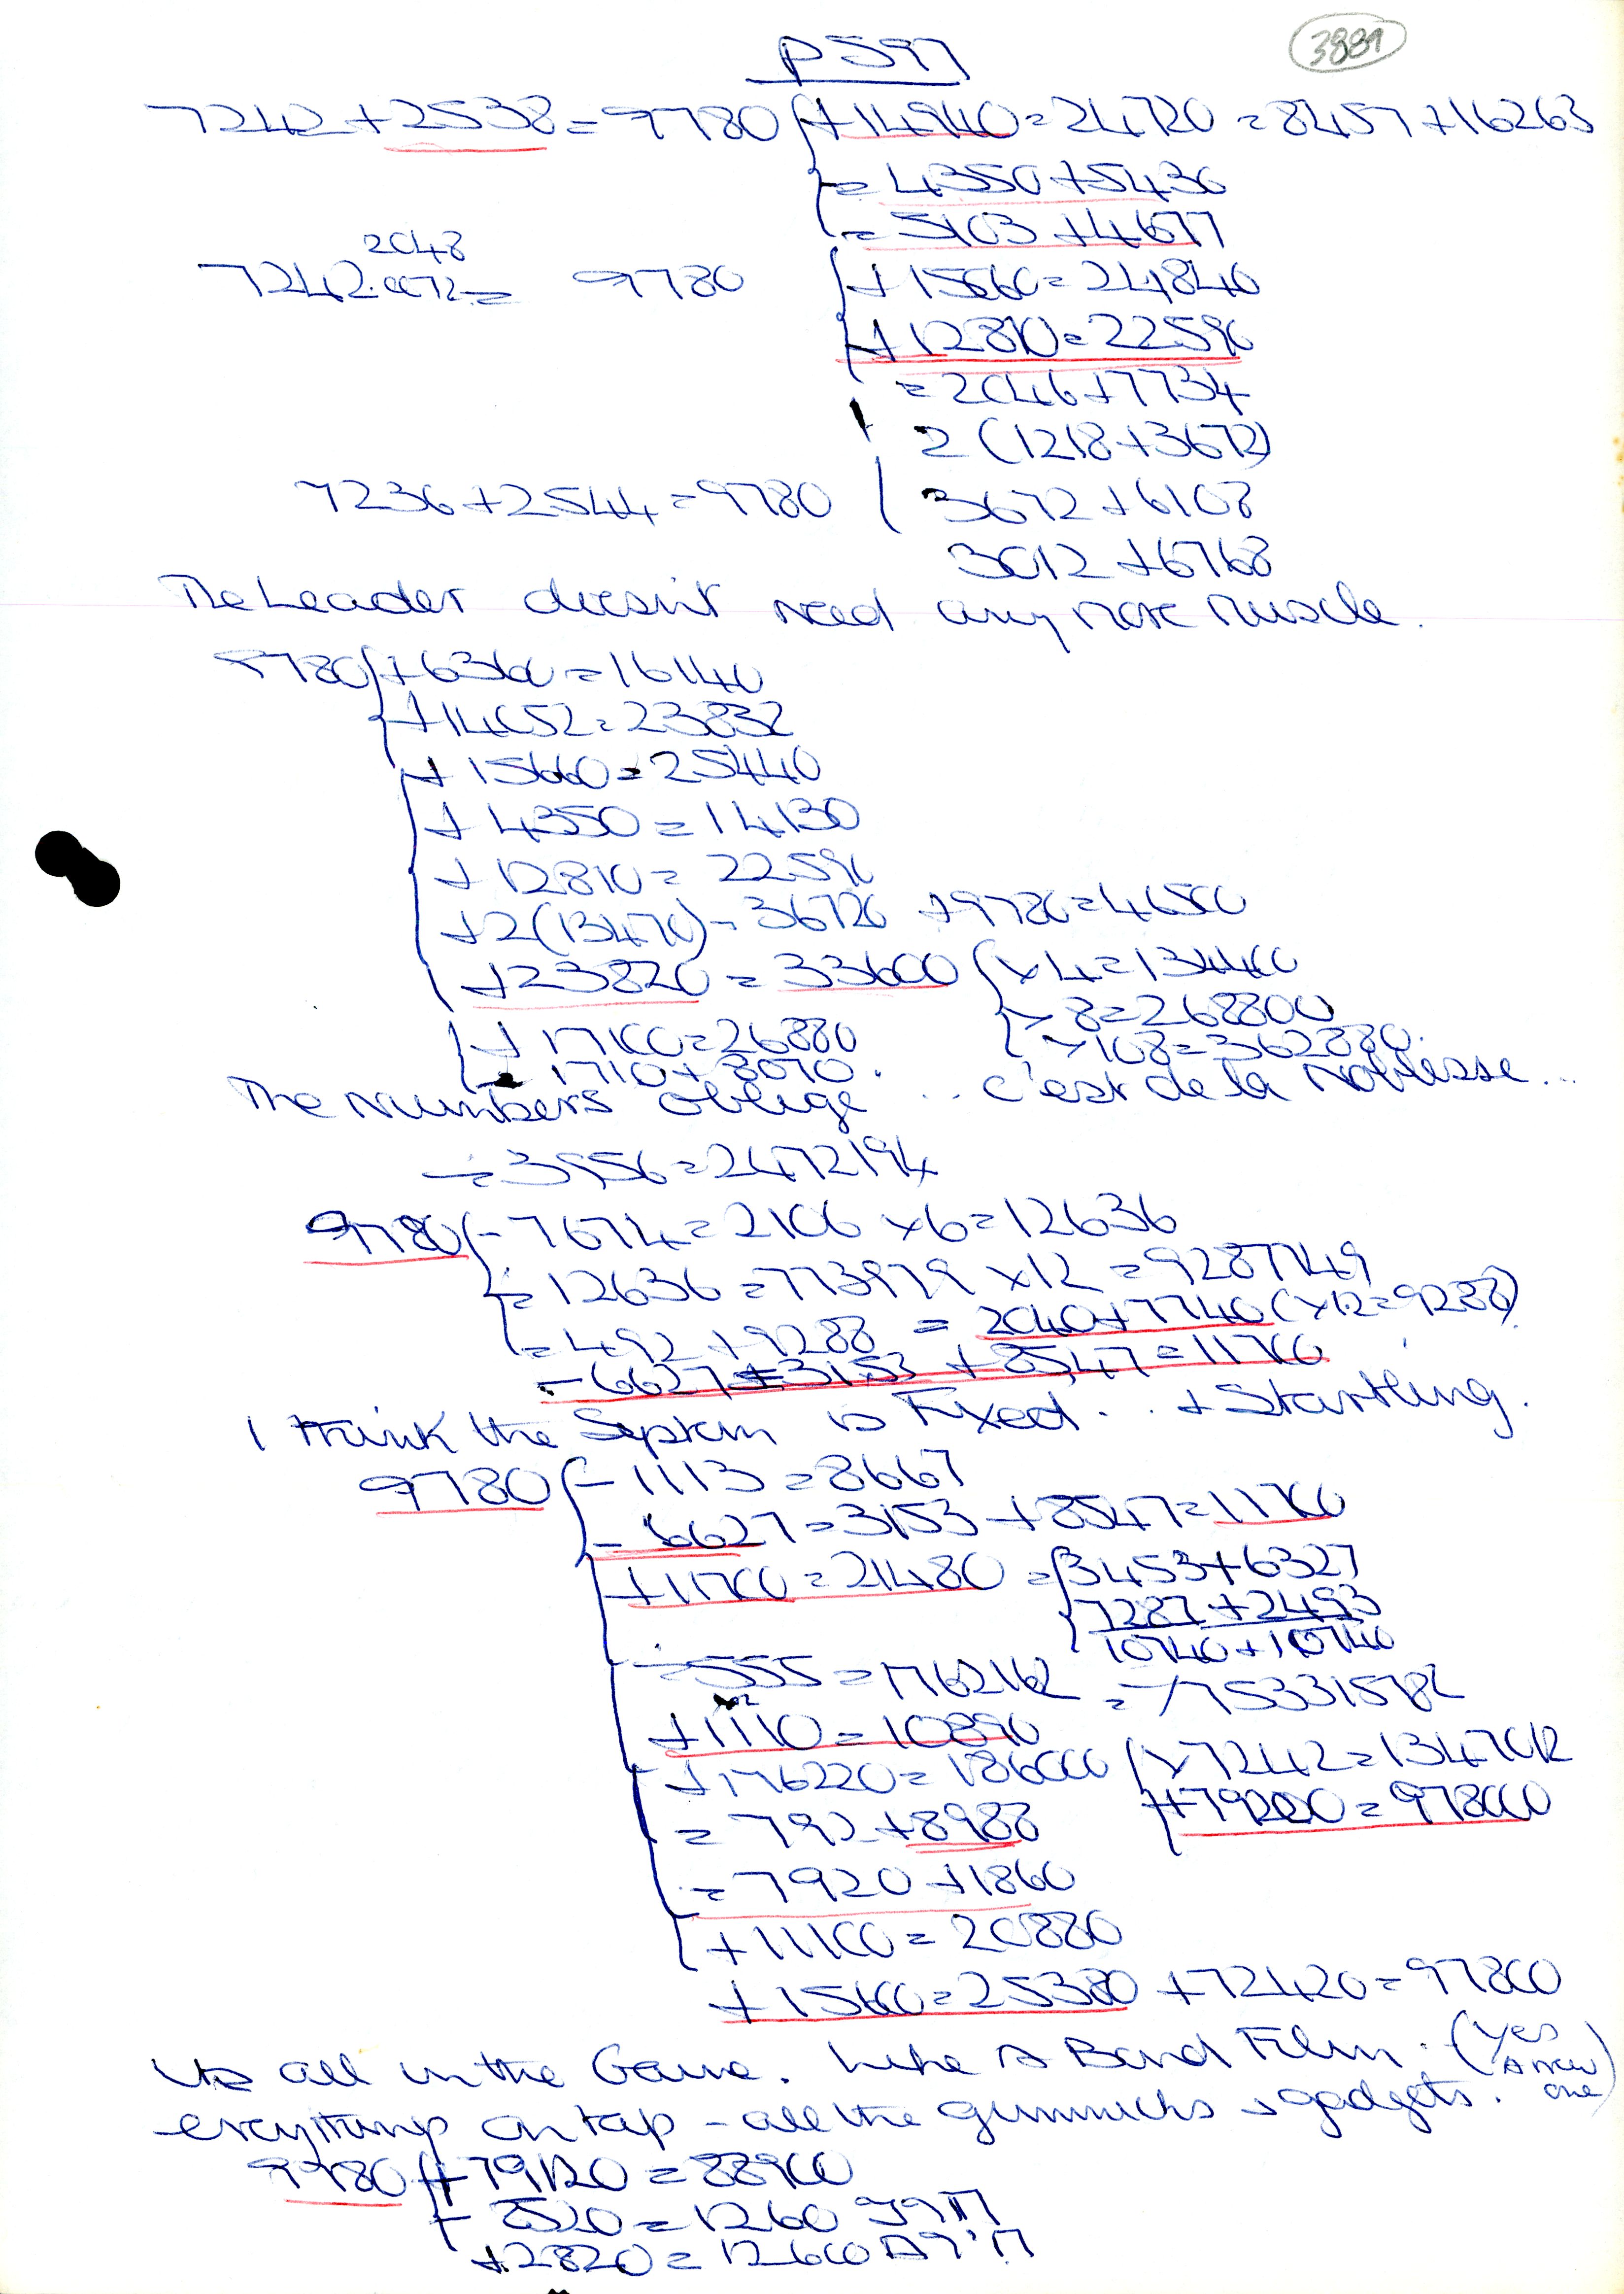 p597
3889
7242 + 2538 = 9780 { + 14940 = 24720 = 8457 + 16263
= 4350 + 5430
= 5103 + 4677
2048
7242. = 9780 { + 15060 = 24840
+ 12810 = 22590
= 2046 + 7734
2 (1218 + 3672)
7236 + 2544 = 9780 ( 3672 + 6108
3012 + 6768
The Leader doesn't need any more muscle.
9780 { + 6360 = 16140
+ 14052 = 23832
+ 15660 = 25440
+ 4350 = 14130
+ 12810 = 22590
+ 2(13470) = 36720 + 9780 = 46500
+ 23820 = 33600 { × 4 = 134400
× 8 = 268800
+ 17100 = 26880 × 108 = 362880.
= 1710 + 8070.
The Numbers oblige ... c'est de la Noblesse...
÷ 3956 = 2472194
9780 { - 7674 = 2106 × 6 = 12636
÷ 12636 = 773979 × 12 = 9287749
= 492 + 9288 = 2040 + 7740 (× 12 = 9288)
- 6627 = 3153 + 8547 = 11700
I think the System is Fixed. . + Startling.
9780 { - 1113 = 8667
- 6627 = 3153 + 8547 = 11700
+ 11700 = 21480 = { 3453 + 6327
7287 + 2493
10740 + 10740
÷ 555 = 1762162
+ 1110 = 10890
+ 176220 = 186000 { × 7242 = 1347012
+ 79200 = 97800
= 792 + 8988
= 7920 + 1860
+ 11100 = 20880
+ 15600 = 25380 + 72420 = 97800
Its all in the Game. Like A Bond Film. (Yes
A new
one)
everything on tap - all the gimmicks + gadgets.
9780 { + 79120 = 88900
- 8520 = 1260
+ 2820 = 12600